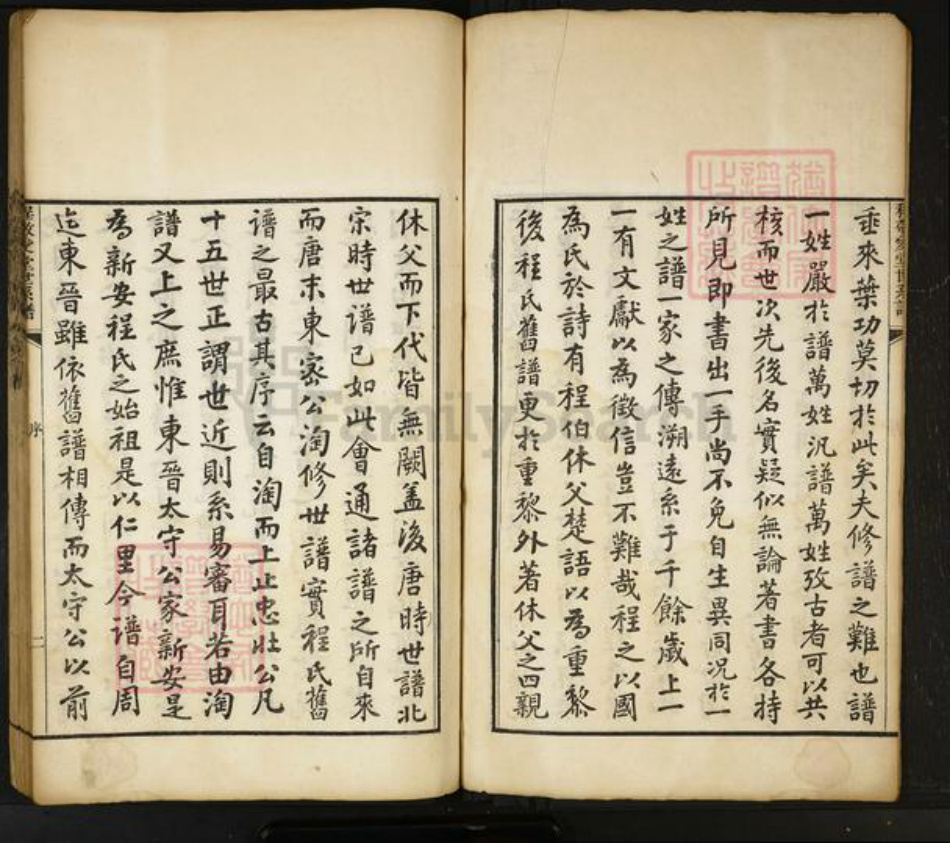 垂來葉功莫切於此矣夫修譜之難也譜
一姓嚴於譜萬姓汎譜萬姓攷古者可以共
核而世次先後名實疑似無論著書各持
所見即書出一手尚不免自生異同况於一
姓之譜一家之傳溯遠系于千餘歲上一
一有文獻以為徵信豈不難哉程之以國
為氏於詩有程伯休父楚語以為重黎
後程氏舊譜更於重黎外著休父之四親
休父而下代皆無闕蓋後唐時世譜北
宋時世譜已如此會通諸譜之所自來
而唐末東密公淘修世譜實程氏舊
譜之最古其序云自淘而上止忠壯公凡
十五世正謂世近則系易審耳若由淘
譜又上之庶惟東晉太守公家新安是
為新安程氏之始祖是以仁里今譜自周
迄東晉雖依舊譜相傳而太守公以前
序
二
FamilySearch